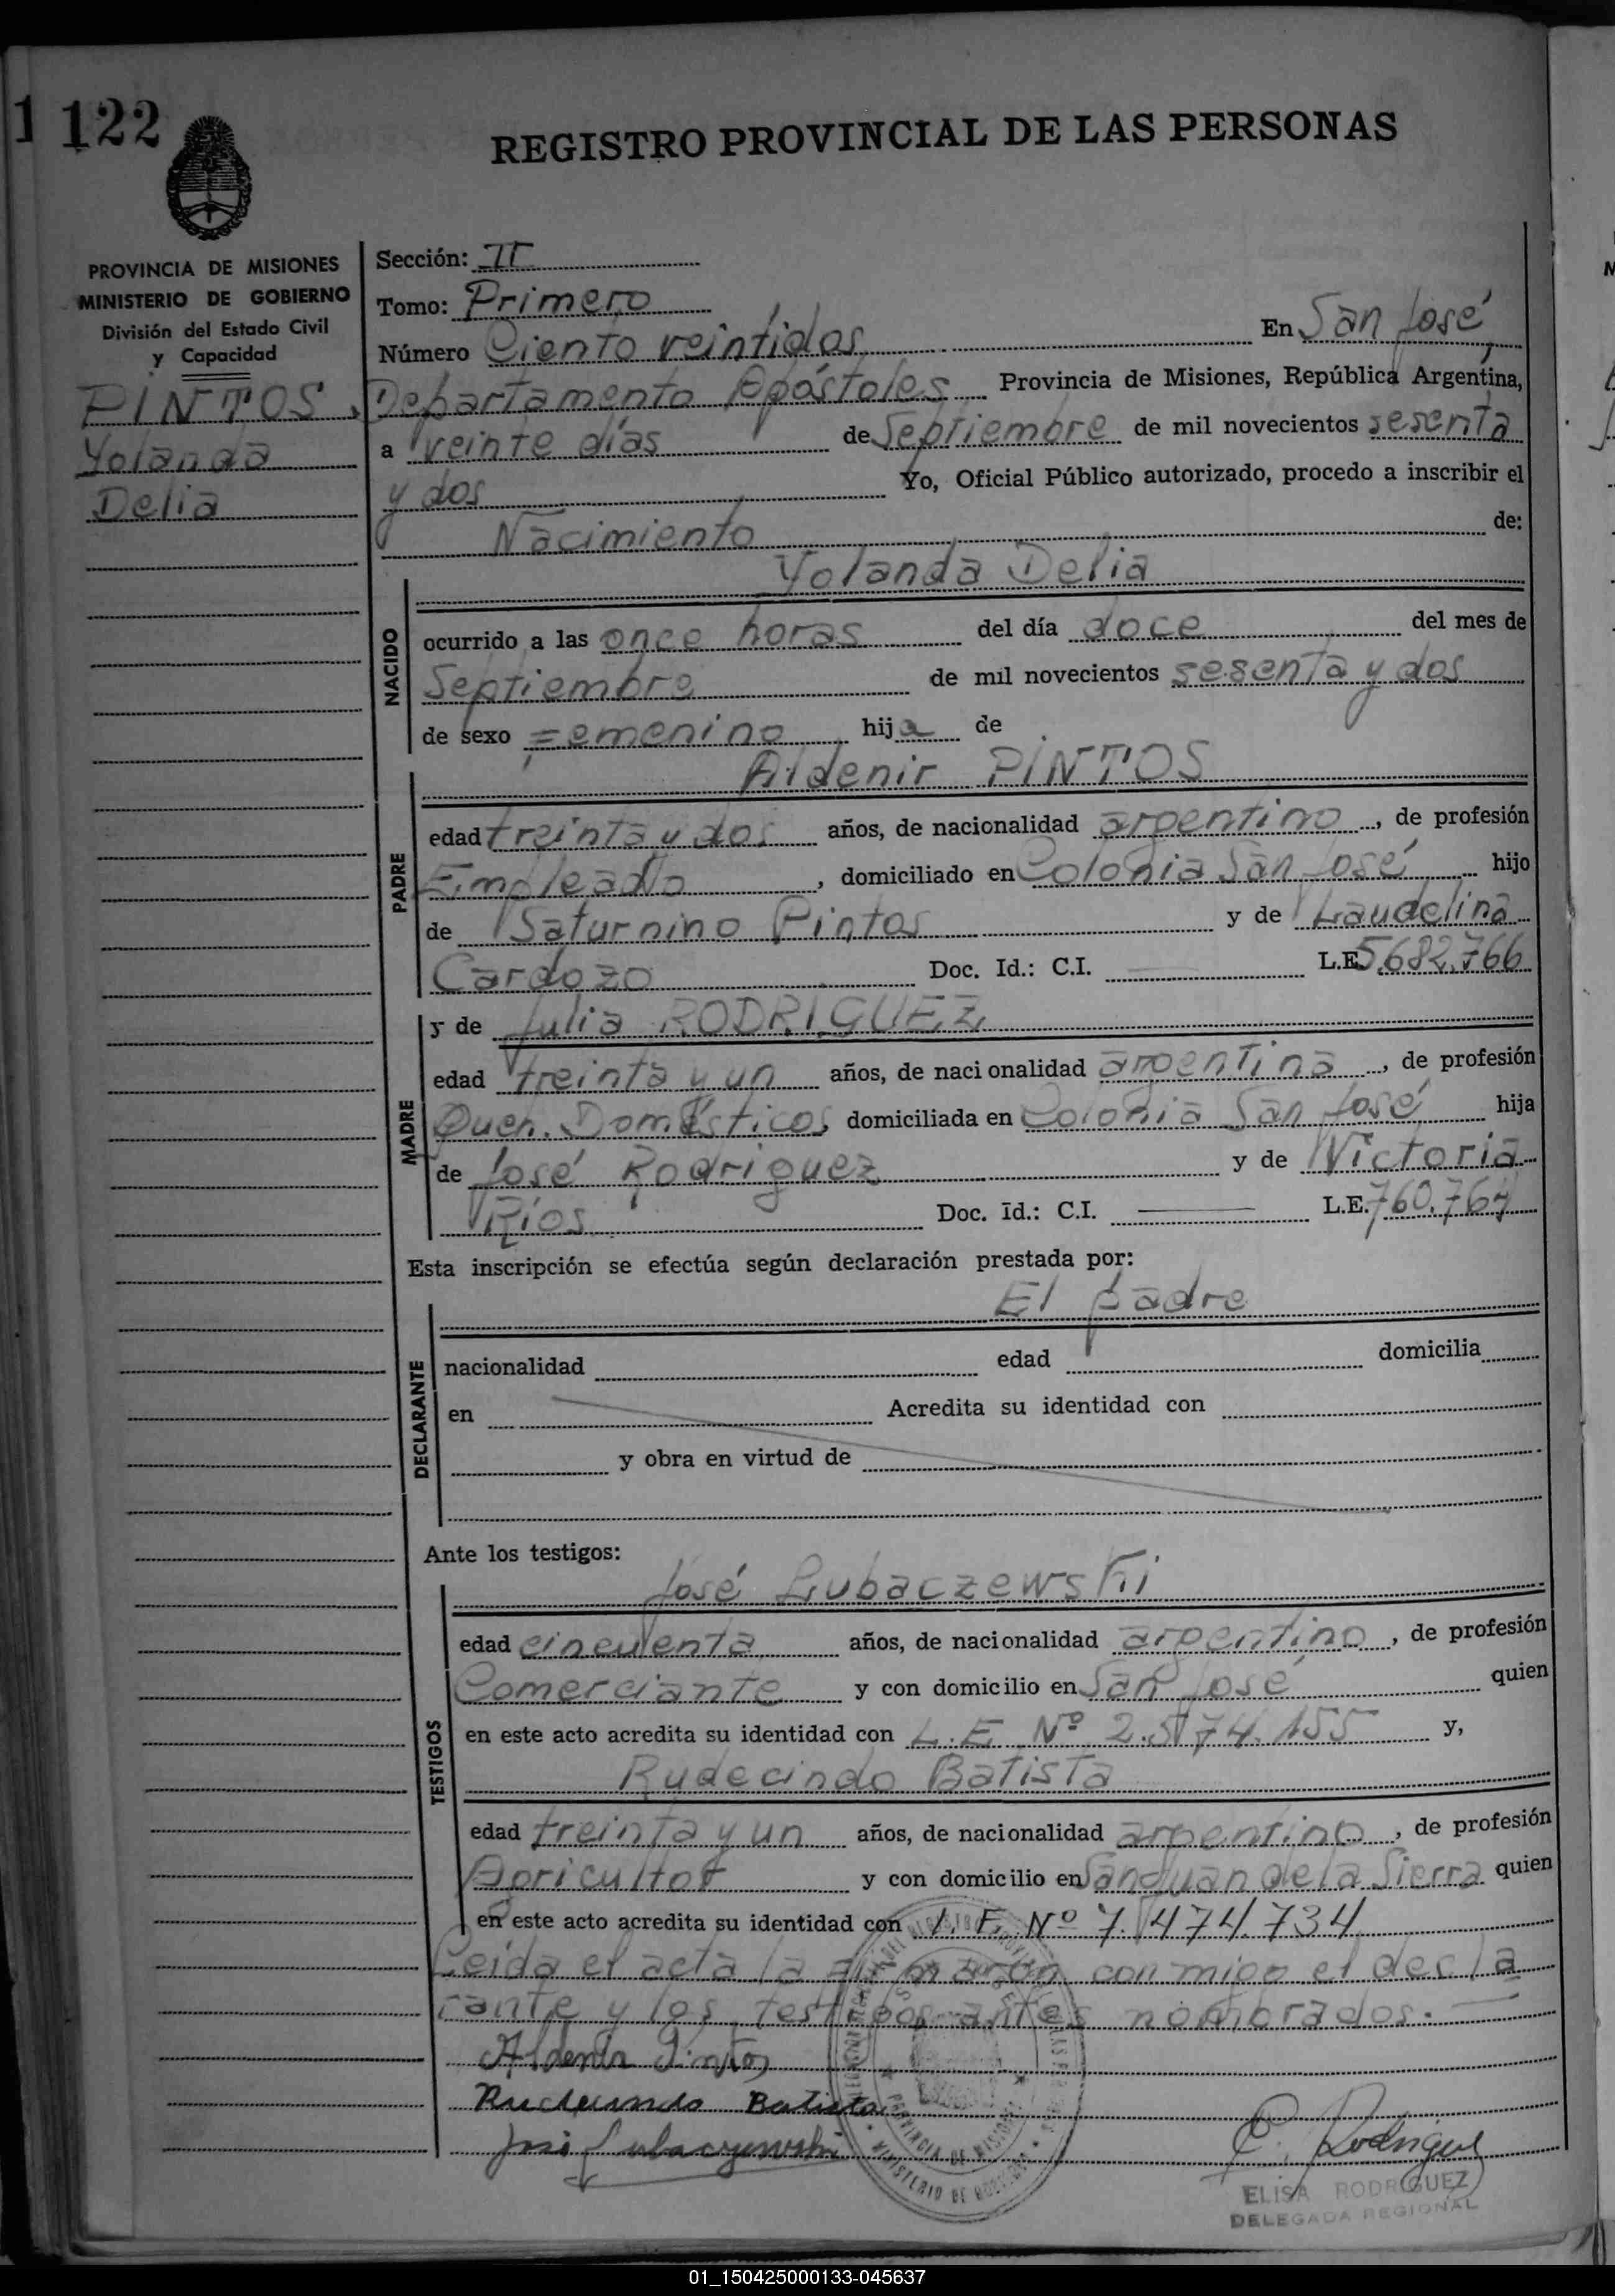 1 122
REGISTRO PROVINCIAL DE LAS PERSONAS
PROVINCIA DE MISIONES
MINISTERIO DE GOBIERNO
División del Estado Civil
y Capacidad
PINTOS,
Yolanda
Delia
Sección: II
Tomo: Primero
Número Ciento veintidos En San José,
Departamento Apóstoles Provincia de Misiones, República Argentina,
a veinte días de Septiembre de mil novecientos sesenta
y dos Yo, Oficial Público autorizado, procedo a inscribir el
Nacimiento de:
Yolanda Delia
NACIDO
ocurrido a las once horas del día doce del mes de
Septiembre de mil novecientos sesenta y dos
de sexo Femenino hija de
Aldenir PINTOS
PADRE
edad treinta y dos años, de nacionalidad argentino, de profesión
Empleado, domiciliado en Colonia San José hijo
de Saturnino Pintos y de Laudelina
Cardozo Doc. Id.: C.I. L.E. 5.682.766
MADRE
y de Julia RODRIGUEZ
edad treinta y un años, de nacionalidad argentina, de profesión
Queh. Domésticos, domiciliada en Colonia San José hija
de José Rodriguez y de Victoria
Ríos Doc. Id.: C.I. L.E. 760.764
Esta inscripción se efectúa según declaración prestada por:
El padre
DECLARANTE
nacionalidad edad domicilia
en Acredita su identidad con
y obra en virtud de
Ante los testigos:
José Lubaczewski
TESTIGOS
edad cincuenta años, de nacionalidad argentino, de profesión
Comerciante y con domicilio en San José quien
en este acto acredita su identidad con L.E. Nº 2.574.155 y,
Rudecindo Batista
edad treinta y un años, de nacionalidad argentino, de profesión
Agricultor y con domicilio en San Juan de la Sierra quien
en este acto acredita su identidad con L.E. Nº 7.474.734
Leída el acta la firmaron conmigo el decla
rante y los testigos antes nombrados.
Aldenir Pintos
Rudecindo Batista
José Lubaczewski
E. Rodriguez
ELISA RODRIGUEZ
DELEGADA REGIONAL
PROVINCIA DE MISIONES
MINISTERIO DE GOBIERNO
01_150425000133-045637